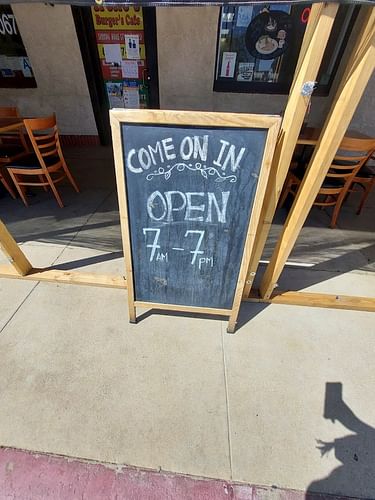 Burger's Cafe
067
COME ON IN
OPEN
7AM - 7PM